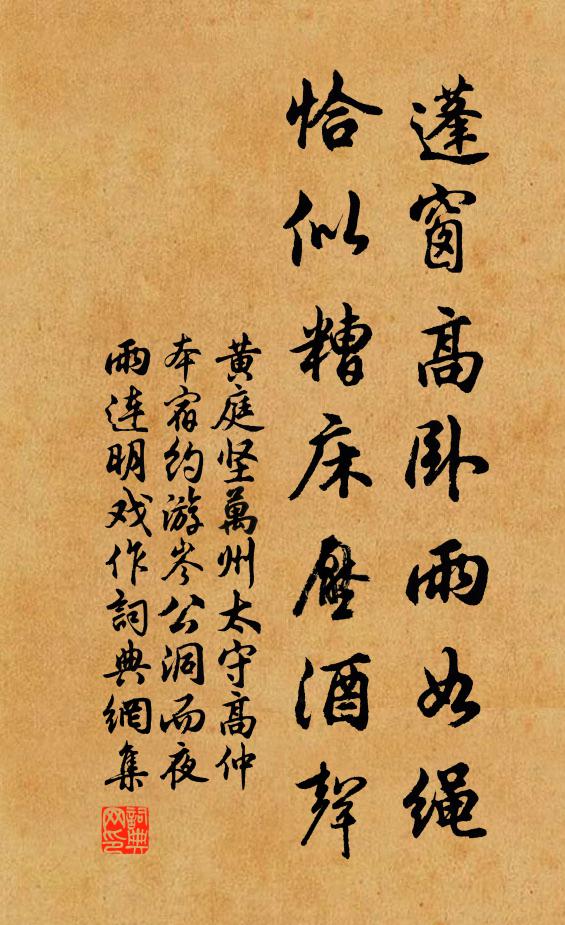 蓬窗高卧雨如绳
恰似糟床压酒声
黄庭坚萬州太守高仲
本宿约游岑公洞而夜
雨连明戏作詞典網集
詞典网印